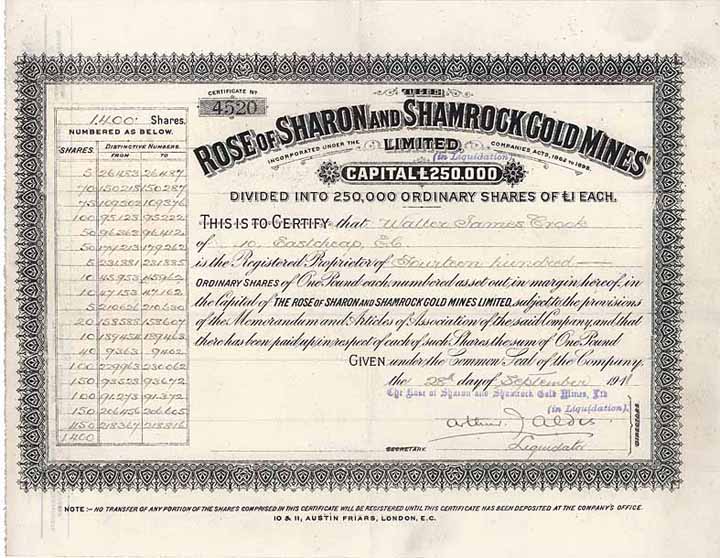 CERTIFICATE No
4520
THE
ROSE OF SHARON AND SHAMROCK GOLD MINES
INCORPORATED UNDER THE LIMITED COMPANIES ACTS, 1862 TO 1898.
(in Liquidation)
CAPITAL £250,000
DIVIDED INTO 250,000 ORDINARY SHARES OF £1 EACH.
1,400 Shares.
NUMBERED AS BELOW.
SHARES. DISTINCTIVE NUMBERS.
FROM TO
5 226483 226487
70 150218 150287
75 109302 109376
100 95123 95222
50 96363 96412
50
5 231881 231885
10 45953 45962
10 47153 47162
5 210626 210630
20 158588 158607
10 189454 189463
40 9363 9402
100 229963 230062
150 93523 93672
100 91273 91372
150 206456 206605
450 218367 218816
1400
THIS IS TO CERTIFY that Walter James Crook
of 10. Eastcheap, E.C.
is the Registered Proprietor of Fourteen hundred
ORDINARY SHARES of One Pound each, numbered as set out in margin hereof, in
the Capital of THE ROSE OF SHARON AND SHAMROCK GOLD MINES LIMITED, subject to the provisions
of the Memorandum and Articles of Association of the said Company, and that
there has been paid up in respect of each of such Shares the sum of One Pound
GIVEN under the Common Seal of the Company,
the 28th day of September 191
The Rose of Sharon and Shamrock Gold Mines, Ltd
(in Liquidation).
Arthur J Aldis
Liquidator
DIRECTORS
SECRETARY.
NOTE:- NO TRANSFER OF ANY PORTION OF THE SHARES COMPRISED IN THIS CERTIFICATE WILL BE REGISTERED UNTIL THIS CERTIFICATE HAS BEEN DEPOSITED AT THE COMPANY'S OFFICE.
10 & 11, AUSTIN FRIARS, LONDON, E.C.